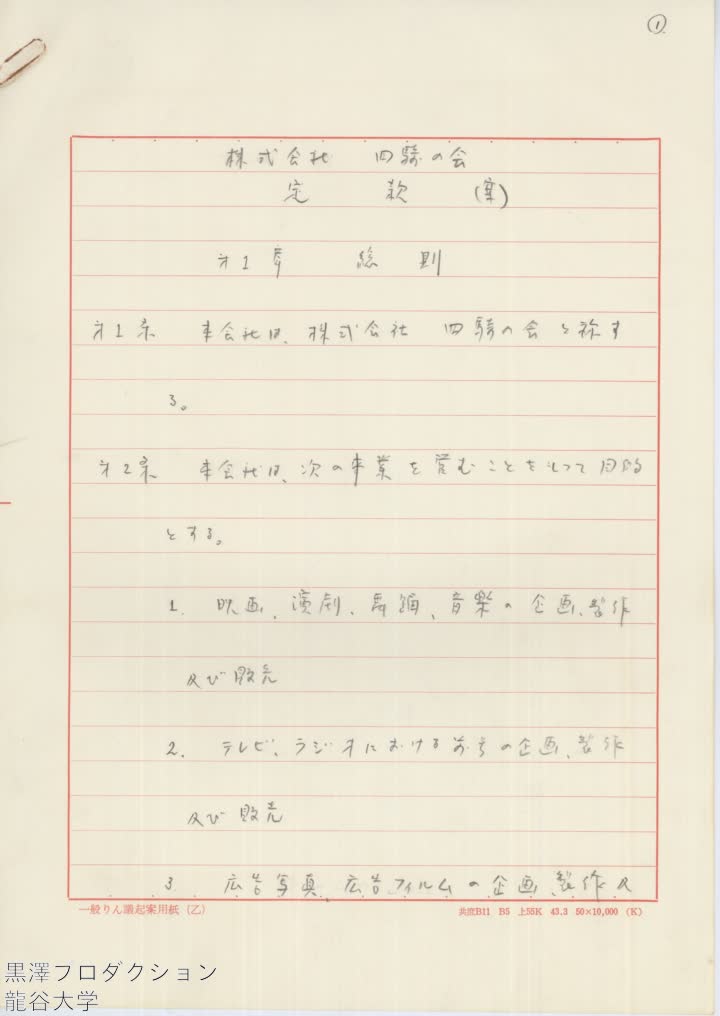 ①
株式会社　四騎の会
定　款　（案）
才1章　総則
才1条　本会社は、株式会社　四騎の会と称す
る。
才2条　本会社は、次の事業を営むことをもって目的
とする。
1. 映画、演劇、舞踊、音楽の企画、製作
及び販売
2. テレビ、ラジオにおける前号の企画、製作
及び販売
3. 広告写真、広告フィルムの企画、製作及
一般りん議起案用紙（乙）　共庶B11　B5　上55K　43.3　50×10,000　（K）
黒澤プロダクション
龍谷大学